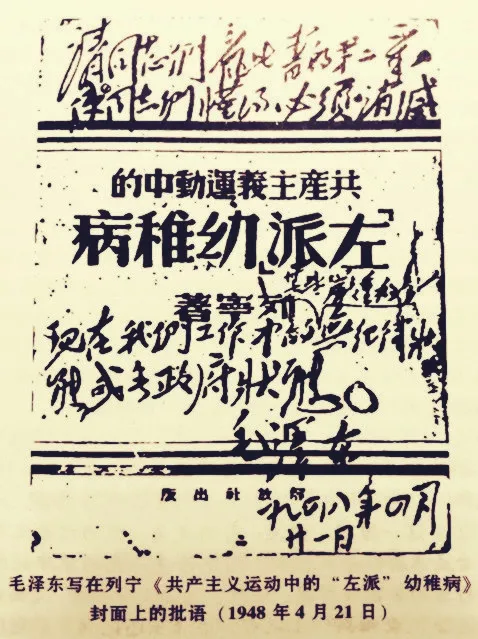 请同志们看此书的第二章，
使同志们懂得，必须消滅
共產主義運動中的
「左派」幼稚病
列寧著
某些嚴重的
现在我们工作中的無纪律狀
態或無政府狀態。
毛澤东
解放社出版
一九四八年四月
廿一日
毛泽东写在列宁《共产主义运动中的“左派”幼稚病》
封面上的批语（1948 年 4 月 21 日）